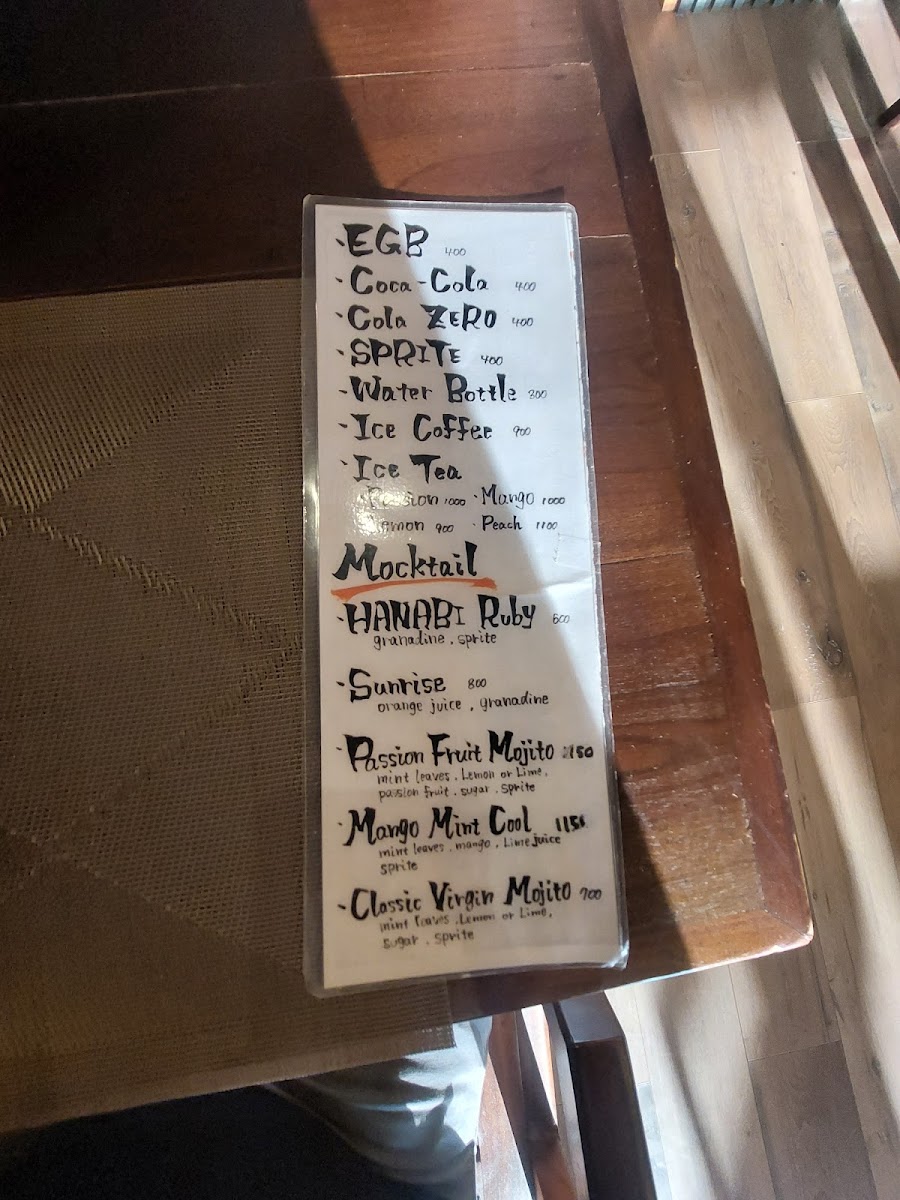 - EGB 400
- Coca-Cola 400
- Cola ZERO 400
- SPRITE 400
- Water Bottle 300
- Ice Coffee 900
- Ice Tea
Passion 1000 · Mango 1000
Lemon 900 · Peach 1100
Mocktail
- HANABI Ruby 600
granadine . sprite
- Sunrise 800
orange juice , granadine
- Passion Fruit Mojito 1150
mint leaves . Lemon or Lime,
passion fruit . sugar . sprite
- Mango Mint Cool
mint leaves . mango . Lime juice
sprite
- Classic Virgin Mojito 900
mint leaves . Lemon or Lime,
sugar . sprite